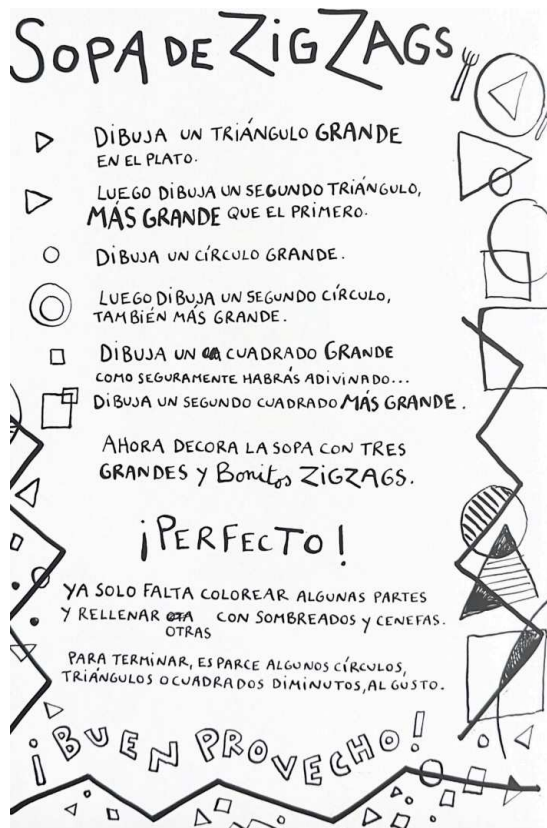 SOPA DE ZiGZAGS
DiBUJA UN TRIÁNGULO GRANDE
EN EL PLATO.
LUEGO DIBUJA UN SEGUNDO TRIÁNGULO,
MÁS GRANDE QUE EL PRIMERO.
DIBUJA UN CÍRCULO GRANDE.
LUEGO DIBUJA UN SEGUNDO CÍRCULO,
TAMBIÉN MÁS GRANDE.
DIBUJA UN CUADRADO GRANDE
COMO SEGURAMENTE HABRÁS ADIVINADO...
DIBUJA UN SEGUNDO CUADRADO MÁS GRANDE.
AHORA DECORA LA SOPA CON TRES
GRANDES Y Bonitos ZIGZAGS.
¡PERFECTO!
YA SOLO FALTA COLOREAR ALGUNAS PARTES
Y RELLENAR OTRAS CON SOMBREADOS Y CENEFAS.
PARA TERMINAR, ESPARCE ALGUNOS CÍRCULOS,
TRIÁNGULOS O CUADRADOS DIMINUTOS, AL GUSTO.
¡BUEN PROVECHO!